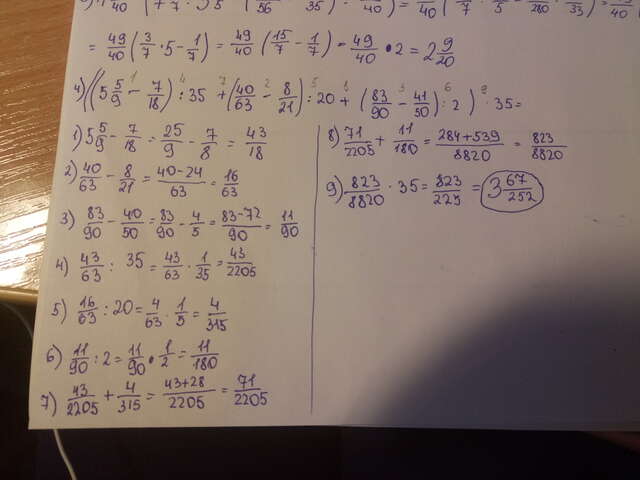 = 49/40 (3/7 · 5 - 1/7) = 49/40 (15/7 - 1/7) = 49/40 · 2 = 2 9/20
4) ((5 5/9 - 7/18) : 35 + (40/63 - 8/21) : 20 + (83/90 - 41/50) : 2) · 35 =
1) 5 5/9 - 7/18 = 25/9 - 7/8 = 43/18
2) 40/63 - 8/21 = 40-24/63 = 16/63
3) 83/90 - 40/50 = 83/90 - 4/5 = 83-72/90 = 11/90
4) 43/63 : 35 = 43/63 · 1/35 = 43/2205
5) 16/63 : 20 = 4/63 · 1/5 = 4/315
6) 11/90 : 2 = 11/90 · 1/2 = 11/180
7) 43/2205 + 4/315 = 43+28/2205 = 71/2205
8) 71/2205 + 11/180 = 284+539/8820 = 823/8820
9) 823/8820 · 35 = 823/223 = 3 67/252